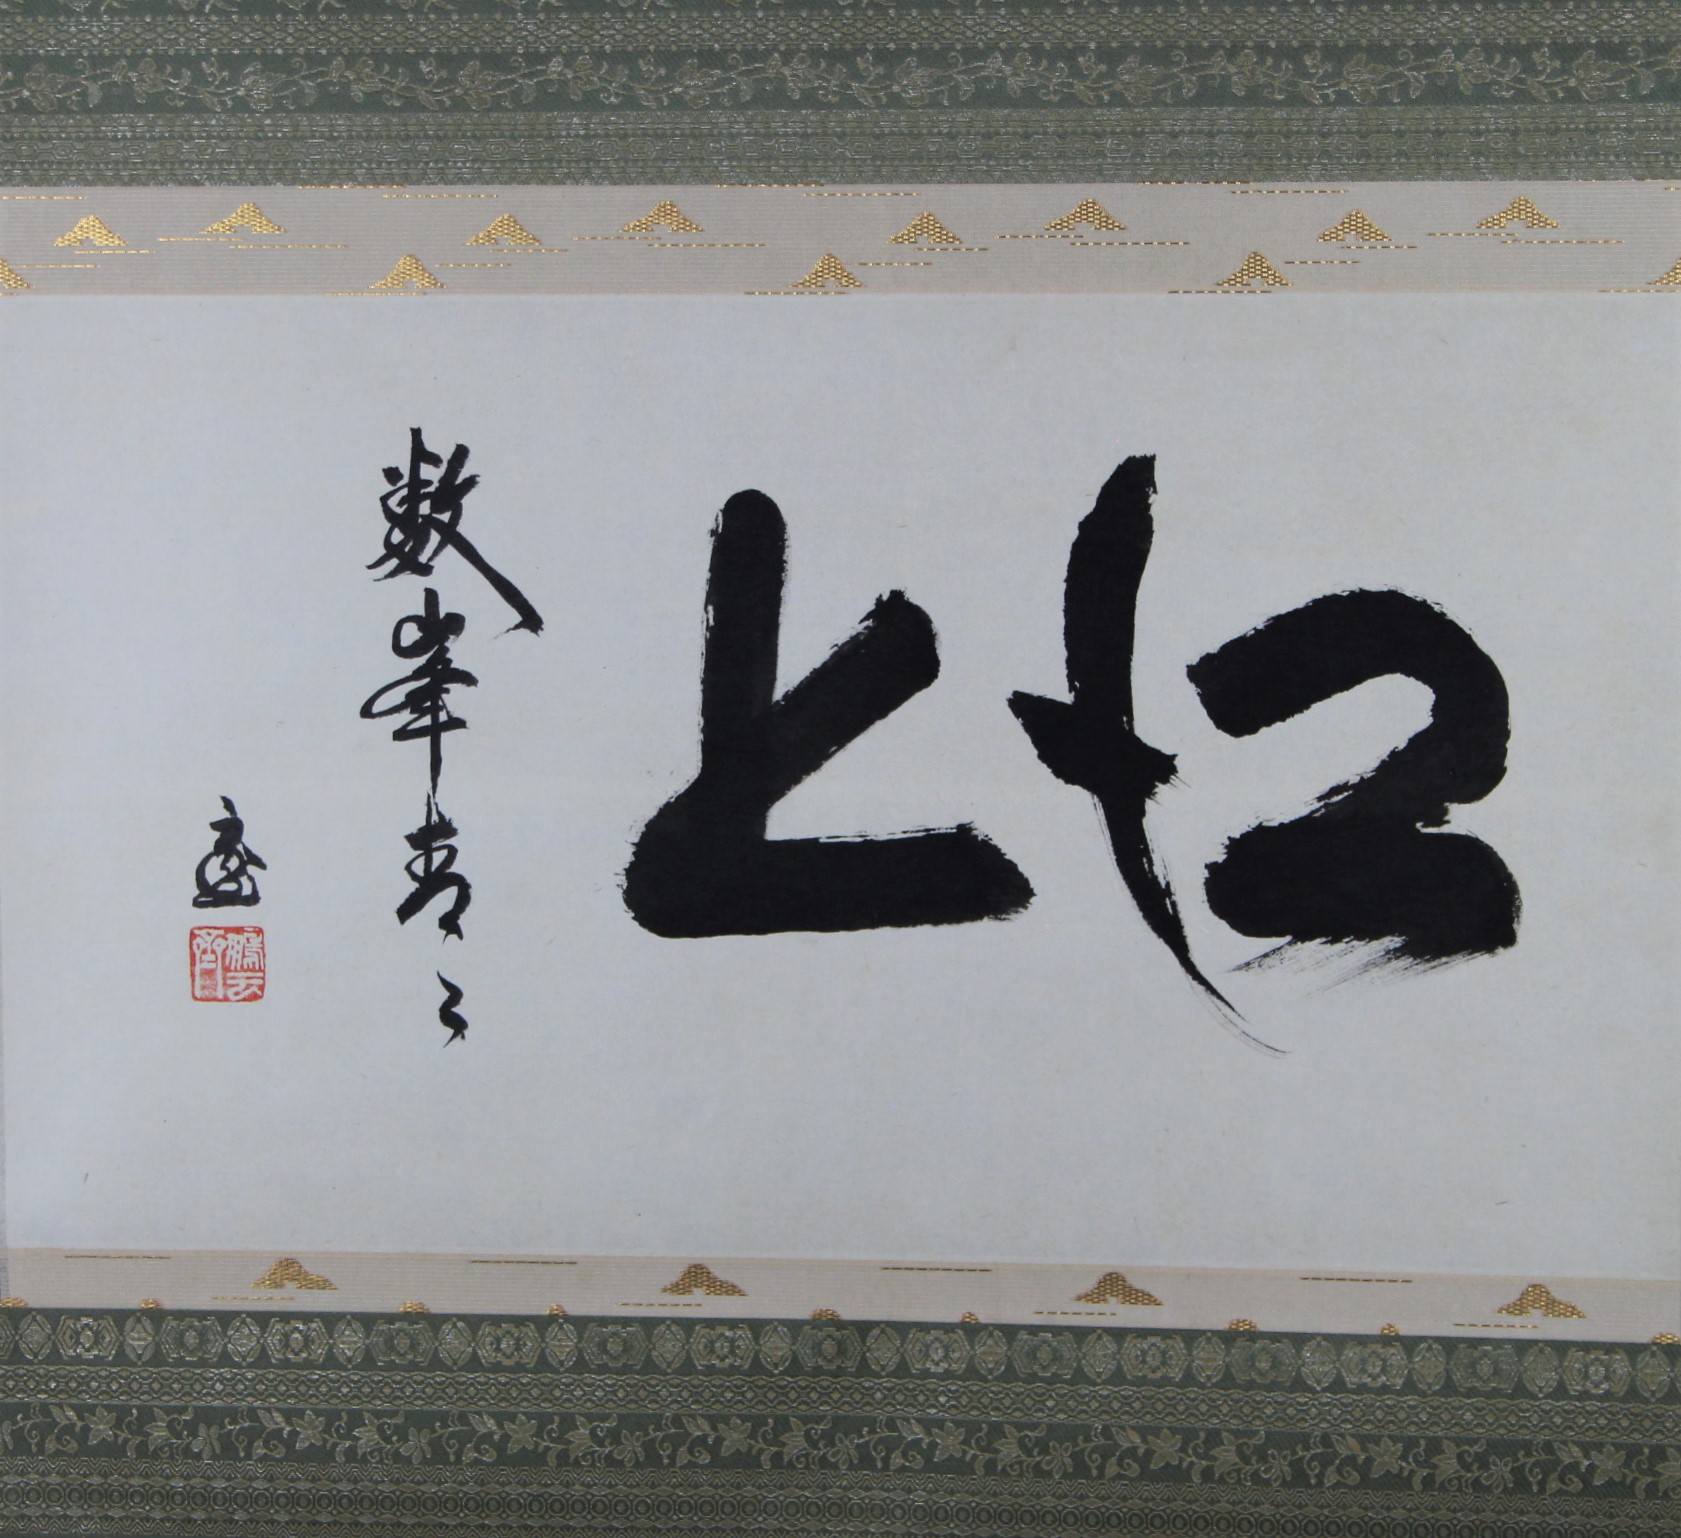 江上
数峯青々